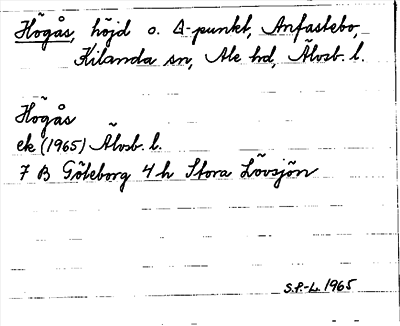 Högås, höjd o. Δ-punkt, Anfastebo,
Kilanda sn, Ale hd, Älvsb. l.
Högås
ek (1965) Älvsb. l.
7 B Göteborg 4 h Stora Lövsjön
S.P.-L. 1965